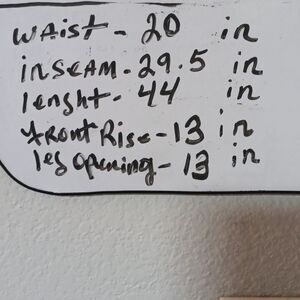 waist - 20 in
inseam - 29.5 in
lenght - 44 in
front Rise - 13 in
leg opening - 13 in